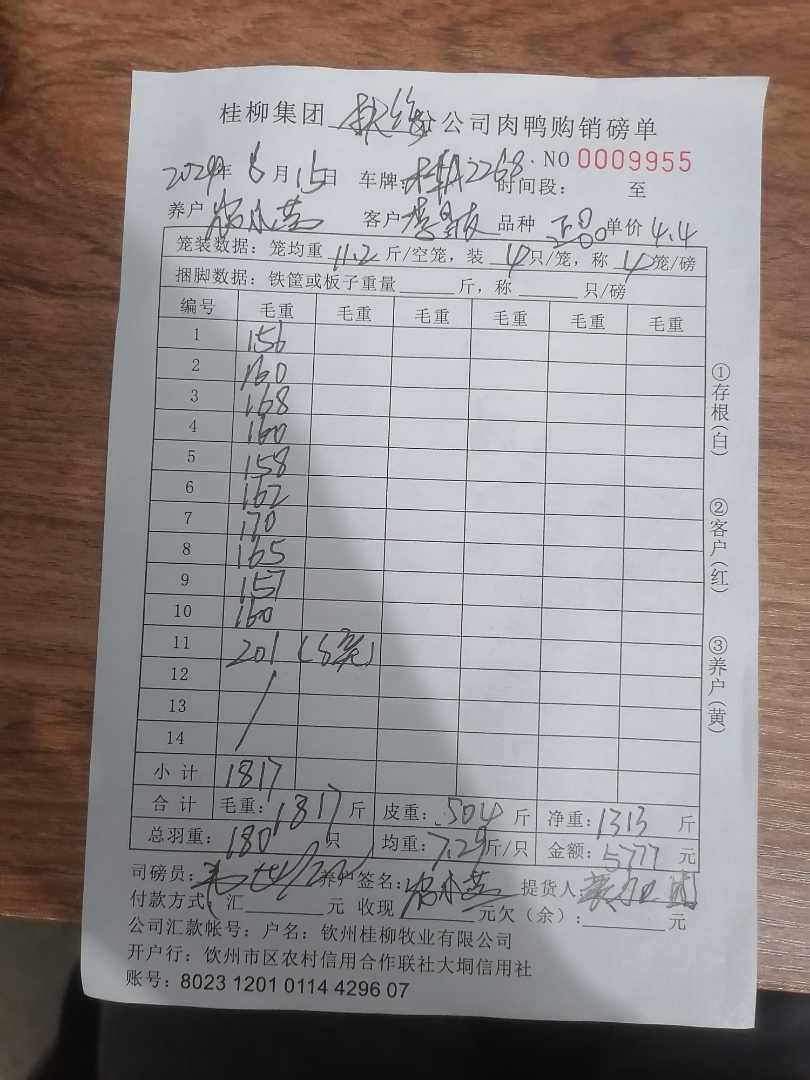 桂柳集团 分公司肉鸭购销磅单
NO 0009955
2024年 6月15日 车牌: 2268 时间段: 至
养户 客户 品种 正品 单价 4.4
笼装数据: 笼均重 11.2 斤/空笼, 装 4 只/笼, 称 4 笼/磅
捆脚数据: 铁筐或板子重量 斤, 称 只/磅
编号 毛重 毛重 毛重 毛重 毛重 毛重
1 156
2 160
3 168
4 160
5 158
6 162
7 170
8 165
9 157
10 160
11 201 (5笼)
12
13
14
小计 1817
合计 毛重: 1817 斤 皮重: 504 斤 净重: 1313 斤
总羽重: 180 只 均重: 7.29 斤/只 金额: 5777 元
司磅员: 养户签名: 提货人:
付款方式: 汇 元 收现 元欠(余): 元
公司汇款帐号: 户名: 钦州桂柳牧业有限公司
开户行: 钦州市区农村信用合作联社大垌信用社
账号: 8023 1201 0114 4296 07
①存根(白)
②客户(红)
③养户(黄)